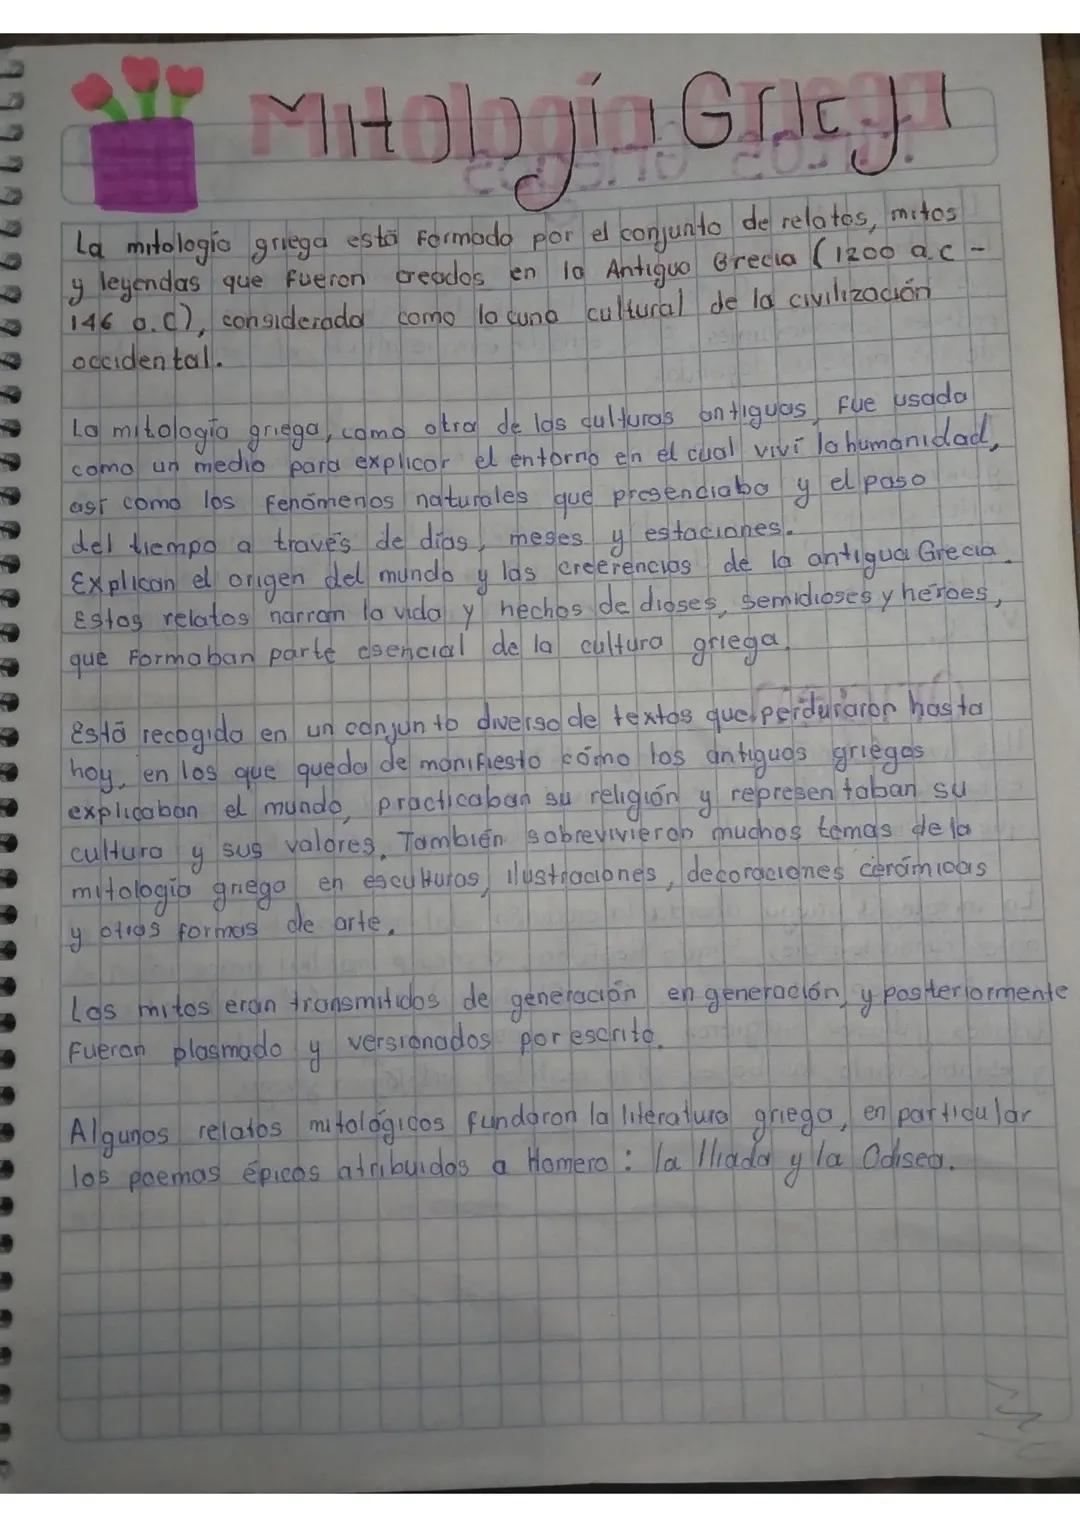 Mitología Griega
La mitología griega está formada por el conjunto de relatos, mitos
y leyendas que fueron creados en la Antigua Grecia (1200 a.c -
146 a.c), considerada como la cuna cultural de la civilización
occidental.
La mitología griega, como otra de las culturas antiguas, fue usada
como un medio para explicar el entorno en el cual viví la humanidad,
así como los fenómenos naturales que presendiaba y el paso
del tiempo a través de días, meses y estaciones.
Explican el origen del mundo y las creerencias de la antigua Grecia.
Estos relatos narram la vida y hechos de dioses, semidioses y héroes,
que formaban parte esencial de la cultura griega.
Está recogida en un conjunto diverso de textos que perduraron hasta
hoy, en los que queda de manifiesto cómo los antiguos griegos
explicaban el mundo, practicaban su religión y representaban su
cultura y sus valores. También sobrevivieron muchos temas de la
mitología griega en esculturas, ilustraciones, decoraciones cerámicas
y otras formas de arte.
Los mitos eran transmitidos de generación en generación y posteriormente
fueron plasmado y versionados por escrito.
Algunos relatos mitológicos fundaron la literatura griega, en particular
los poemas épicos atribuidos a Homero: la Iliada y la Odisea.